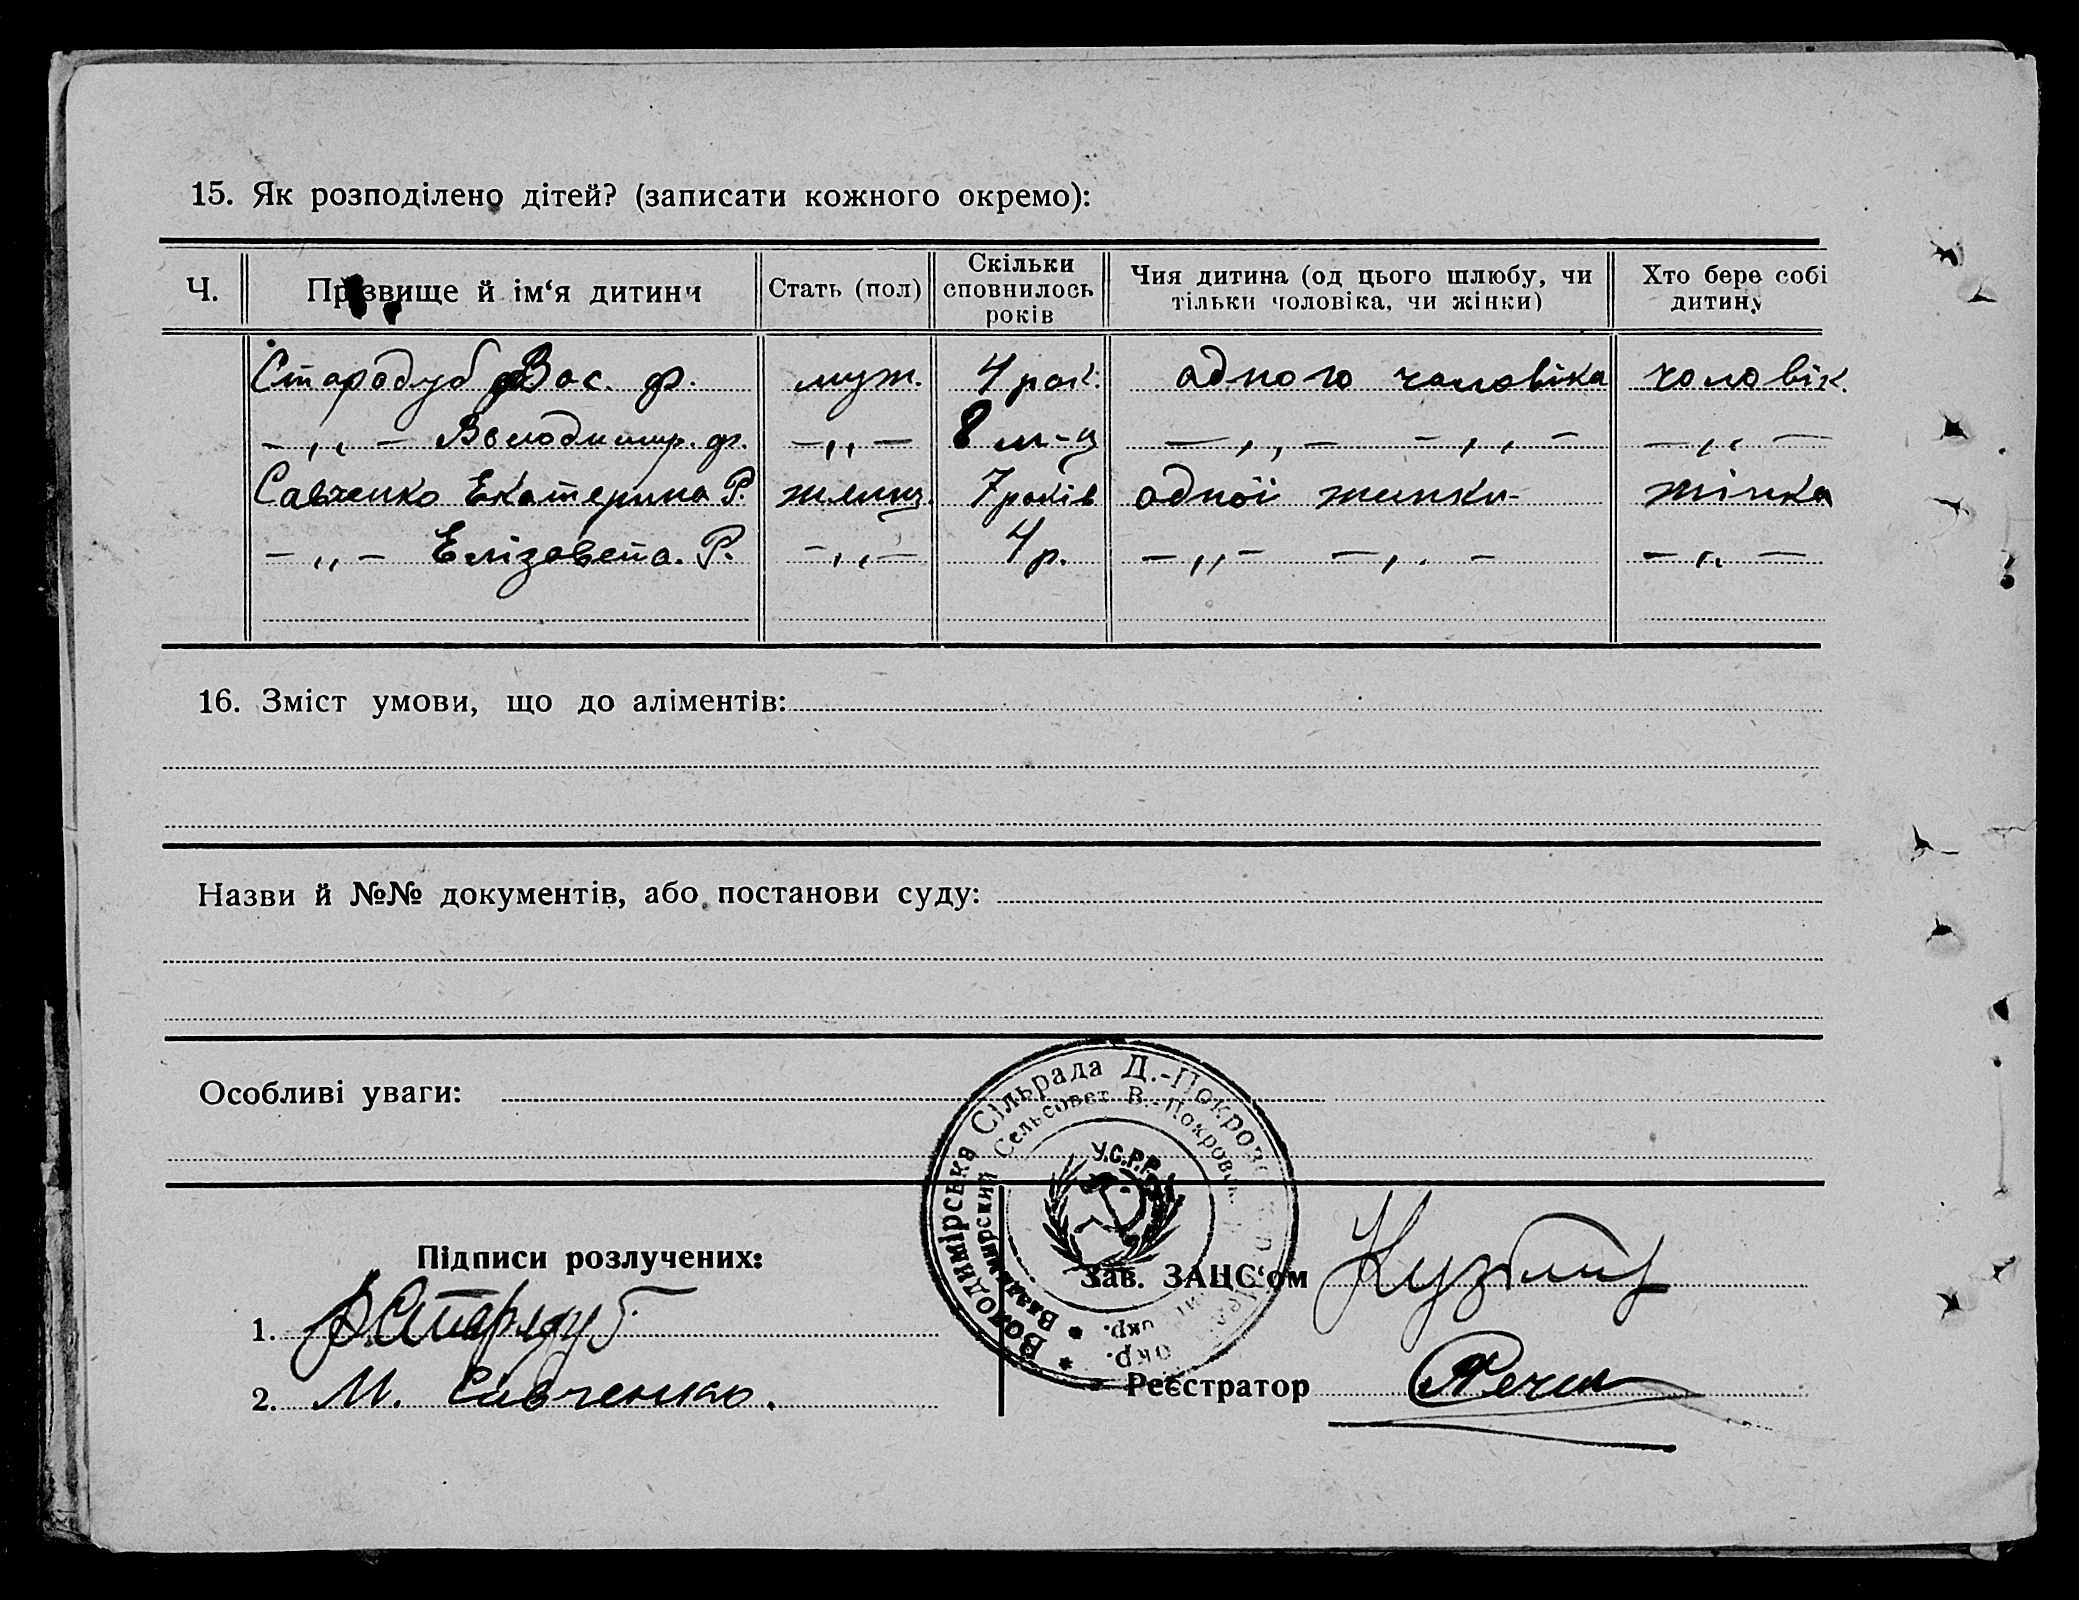 15. Як розподілено дітей? (записати кожного окремо):
Ч. Прізвище й ім‘я дитини Стать (пол) Скільки сповнилось років Чия дитина (од цього шлюбу, чи тільки чоловіка, чи жінки) Хто бере собі дитину
Стародуб Вас. ф. муж. 4 рок. одного чоловіка чоловік.
– „ – Володимир. ф. – „ – 8 м-ц – „ – – „ – – „ –
Савченко Екатерина Р. жинщ. 7 років одної жинки жінка
– „ – Елізавета. Р. – „ – 4 р. – „ – – „ – – „ –
16. Зміст умови, що до аліментів:
Назви й №№ документів, або постанови суду:
Особливі уваги:
Володимірська Сільрада Д.-Покровс
Владимирский Сельсовет В.-Покровск.
У.С.Р.Р.
окр.
окр.
Підписи розлучених:
Зав. ЗАЦС‘ом
1. Стародуб
2. М. Савченко.
Реєстратор